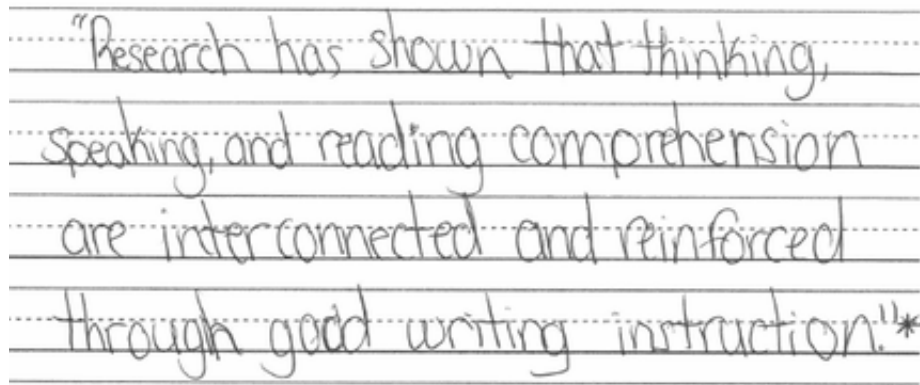 "Research has shown that thinking,
speaking, and reading comprehension
are interconnected and reinforced
through good writing instruction."*